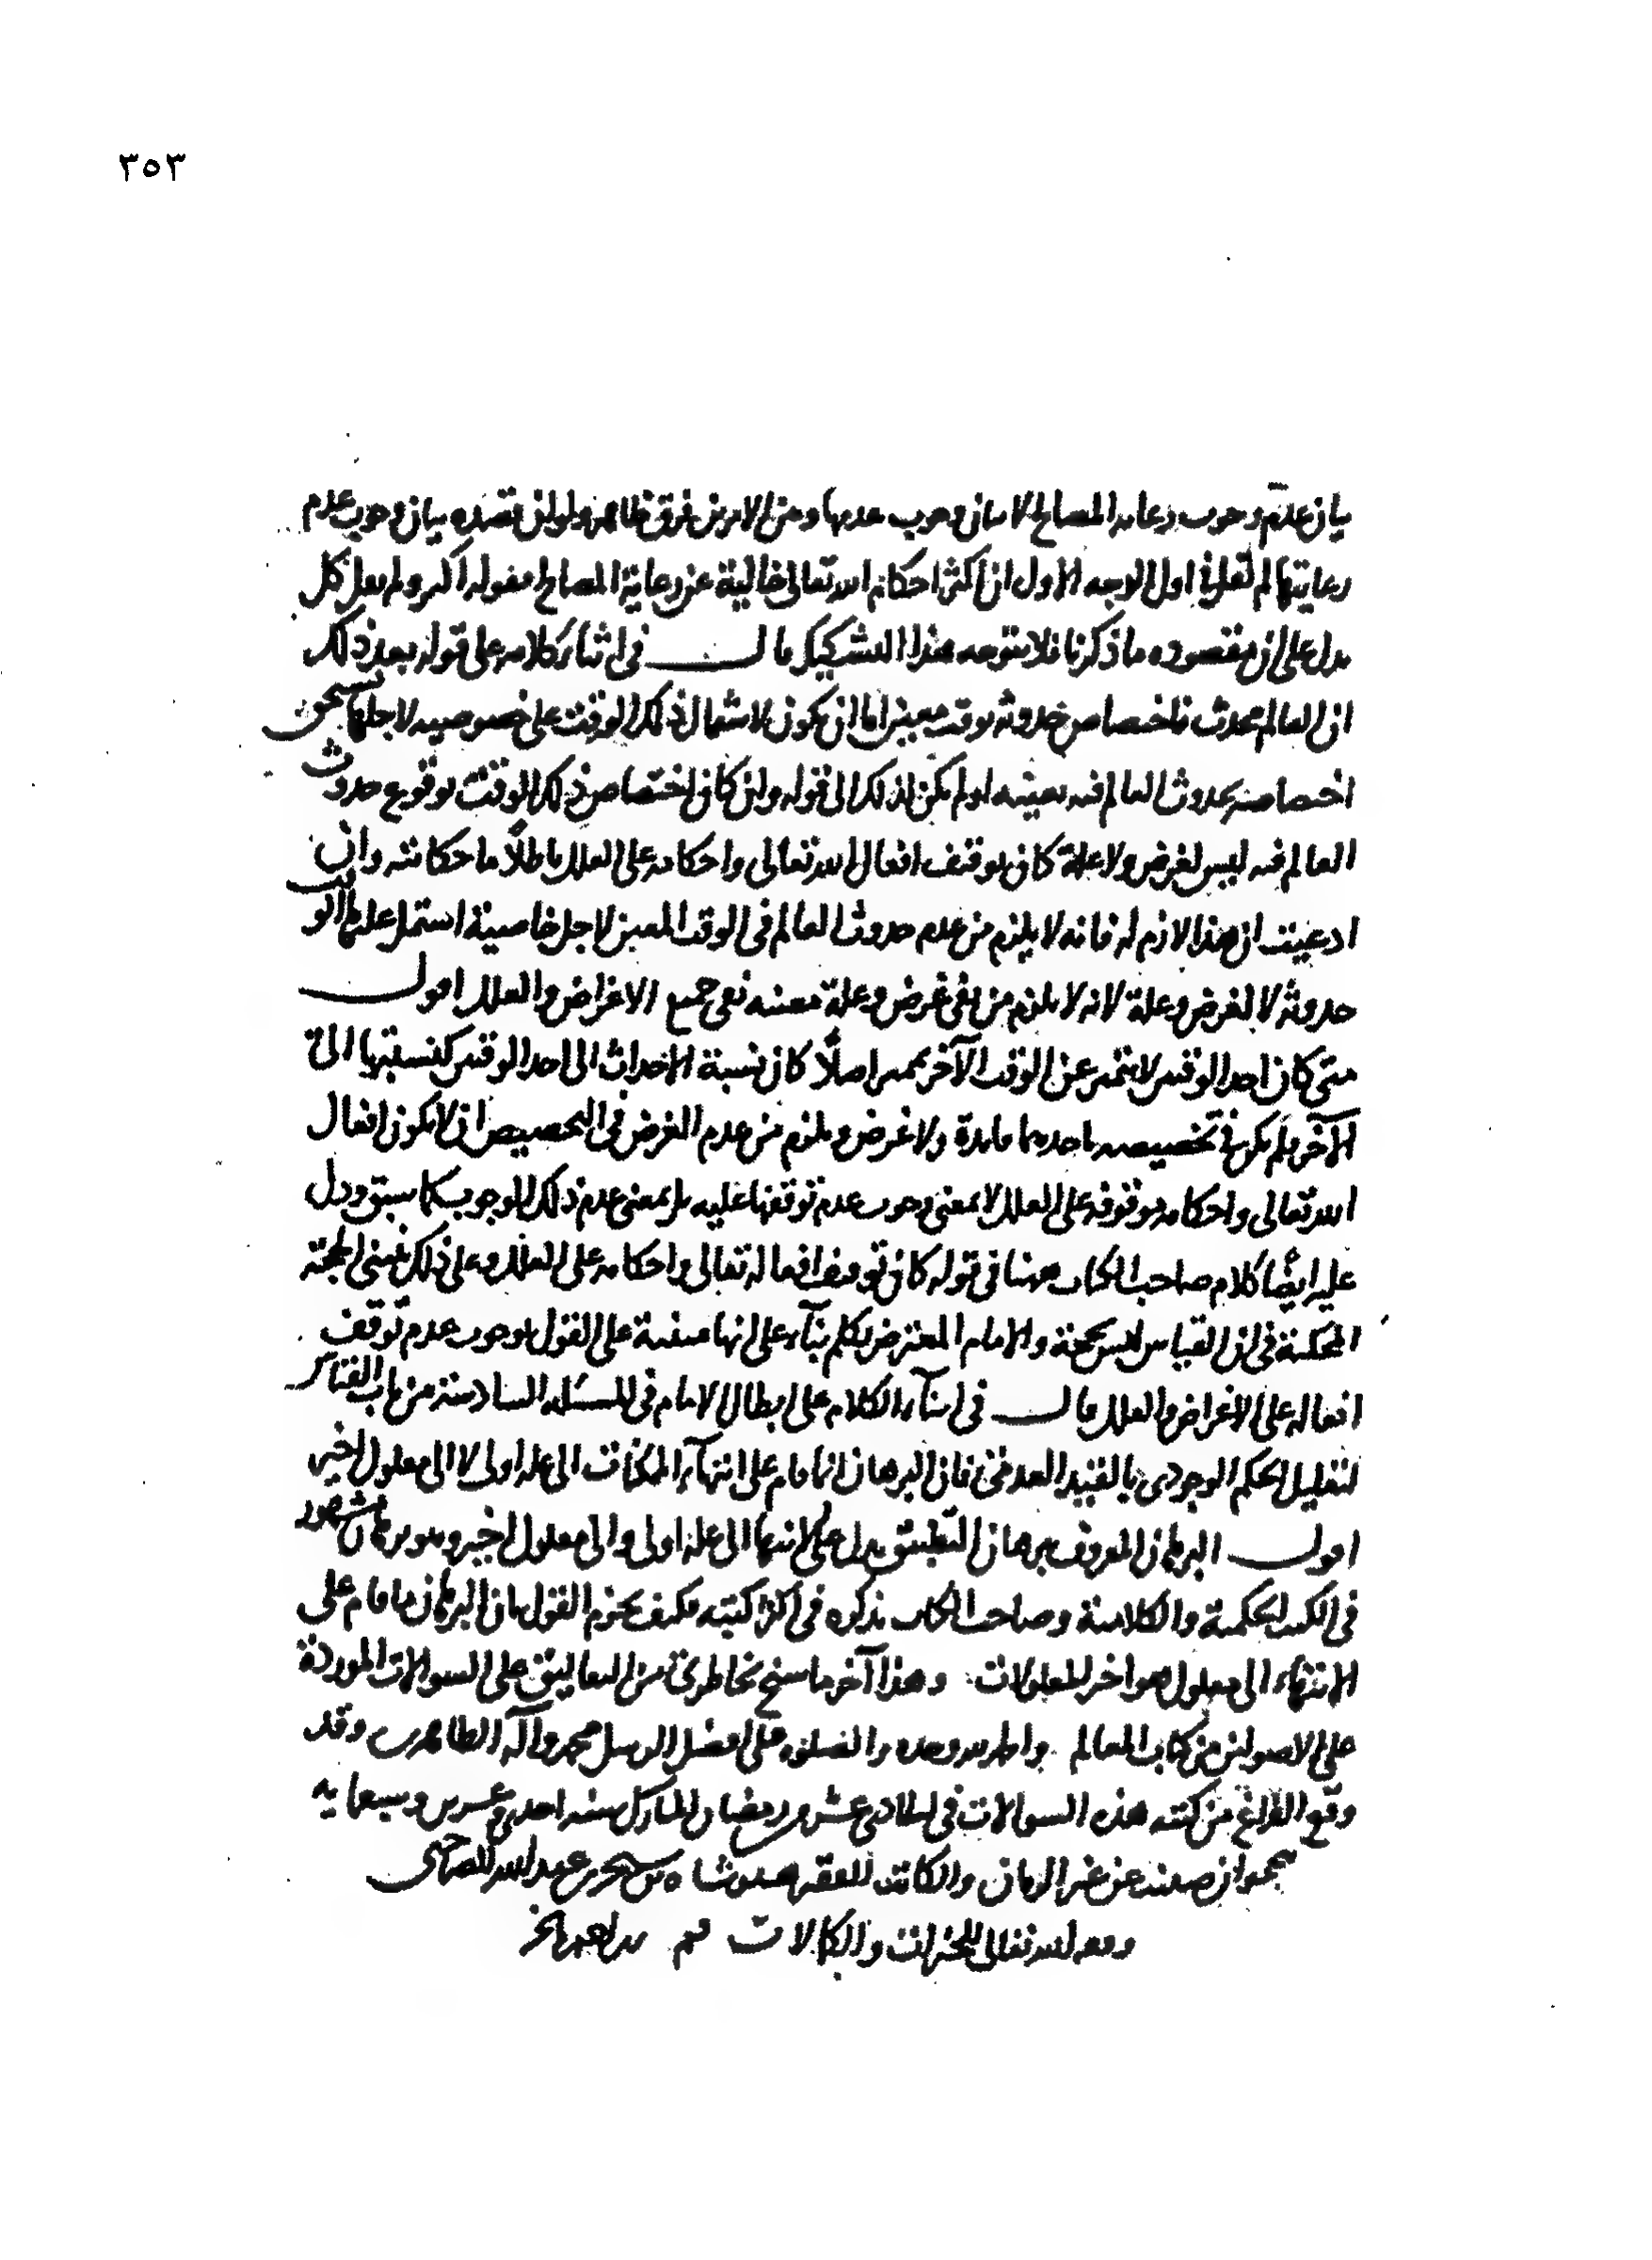 ٣٥٣
بيان عدم وجوب رعاية المصالح لا بيان وجوب عدمها وبين الامرين فرق ظاهر ولو ان قصده بيان وجوب عدم
رعايتها لم تعل في اول الوجه الاول ان اكثر احكام الله تعالى خالية عن رعاية المصالح فقوله اكثر ولم يقل كل
يدل على ان مقصوده ما ذكرنا فلا يتوجه هذا التشكيك قال في اثناء كلامه على قوله بعد ذلك
ان العالم محدث فاختصاص حدوثه بوقت معين اما ان يكون لاشتمال ذلك الوقت على خصوصية لاجلها يستحق
اختصاصه بحدوث العالم فيه بعينه او لم يكن كذلك الى قوله وان كان اختصاص ذلك الوقت بوقوع حدوث
العالم فيه ليس لغرض ولا علة كان توقف افعال الله تعالى واحكامه على العلل باطلاً ما حكايته وان
ادعيت ان هذا لازم له فانه لا يلزم من عدم حدوث العالم في الوقت المعين لاجل خاصية اشتمل عليها الوقت
حدوثه لا لغرض وعلة لانه لا يلزم من نفي غرض وعلة معينه نفي جميع الاغراض والعلل اقول
متى كان احد الوقتين لا يتميز عن الوقت الآخر بمميز اصلاً كان نسبة الاحداث الى احد الوقتين كنسبتها الى
الآخر فلم يكن في تخصيصه باحدهما فايدة ولا غرض ويلزم من عدم الغرض في التخصيص ان لا يكون افعال
الله تعالى واحكامه موقوفه على العلل لا بمعنى وجوب عدم توقفها عليه بل بمعنى عدم ذلك الوجوب كما سبق ودل
عليه ايضًا كلام صاحب الكتاب ههنا في قوله كان توقف افعاله تعالى واحكامه على العلل وعلى ذلك بنى الحجة
المحكية في ان القياس ليس بحجة والامام المعترض تكلم بناء على انها مبنية على القول بوجوب عدم توقف
افعاله على الاغراض والعلل قال في اثناء الكلام على ابطال الامام في المسئله السادسة من باب القياس
لتعليل الحكم الوجودي بالقيد العدمي فان البرهان انما قام على انتهاء الممكنات الى علة اولى لا الى معلول اخير
اقول البرهان المعروف ببرهان التطبيق يدل على الانتهاء الى علة اولى والى معلول اخير وهو برهان مشهور
في الكتب الحكمية والكلامية وصاحب الكتاب يذكره في اكثر كتبه فكيف يجزم القول بان البرهان ما قام على
الانتهاء الى معلول هو اخر المعلولات وهذا آخر ما سنح بخاطري من التعاليق على السوالات الموردة
على الاصولين من كتاب المعالم والحمد لله وحده والصلوة على افضل الرسل محمد وآله الطاهرين وقد
وقع الفراغ من كتبه هذه السوالات في الحادي عشر من رمضان المبارك سنه احدى وعشرين وسبعمايه
عن غير الزمان والكاتب الفقير هندوشاه بن سنجر بن عبد الله الصاحبي
وفقه الله تعالى للخيرات والكمالات تم